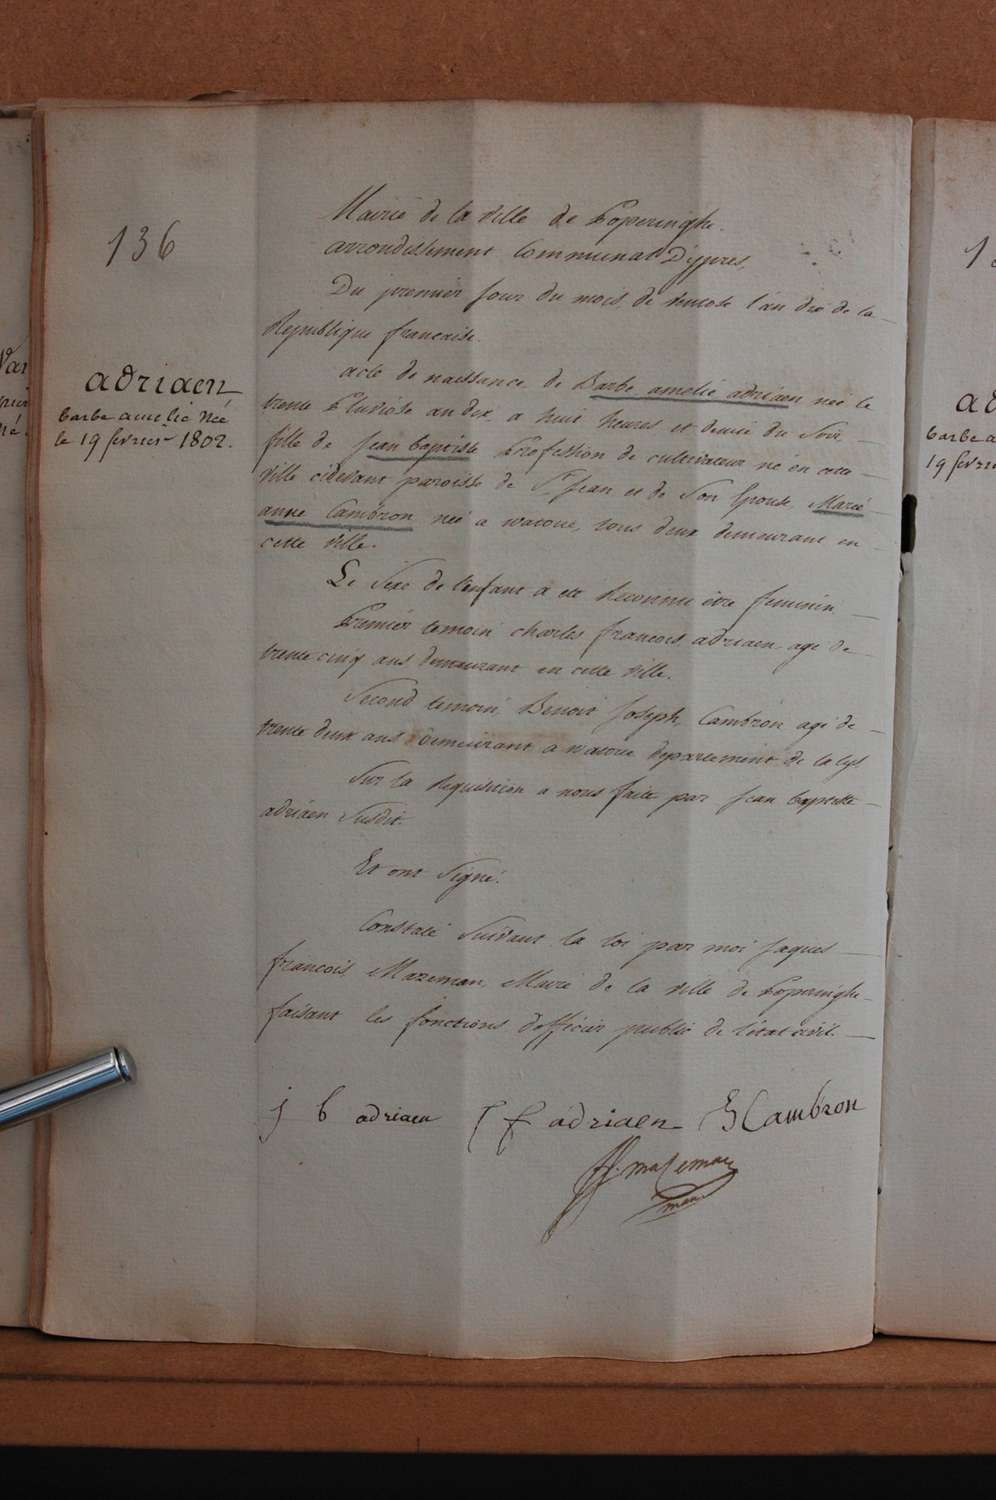 136
adriaen
barbe amelie née
le 19 fevrier 1802.
Mairie de la ville de Poperinghe
arrondissement Communal D'ypres,
Du premier jour du mois de ventose l'an dix de la
République francaise.
acte de naissance de Barbe amelie adriaen née le
trente Pluviose an dix, a huit heures et demie du soir
fille de jean baptiste Profession de cultivateur né en cette
ville cidevant paroisse de St jean et de Son Epouse, Marie
anne Cambron née a watoue, tous deux demeurant en
cette ville.
Le Sexe de l'enfant a eté Reconnu être feminin
Premier temoin charles francois adriaen agé de
trente cinq ans demeurant en cette ville.
Second temoin, Benoit Joseph Cambron agé de
trente deux ans demeurant a watoue departement de la lys
Sur la Requisition a nous faite par jean baptiste
adriaen Susdit.
Et ont Signé.
Constaté Suivant la loi par moi jaques
francois Mazeman, Maire de la ville de Poperinghe
faisant les fonctions d'officier public de l'état civil.
j b adriaen
C f adriaen
B J Cambron
J f. mazeman